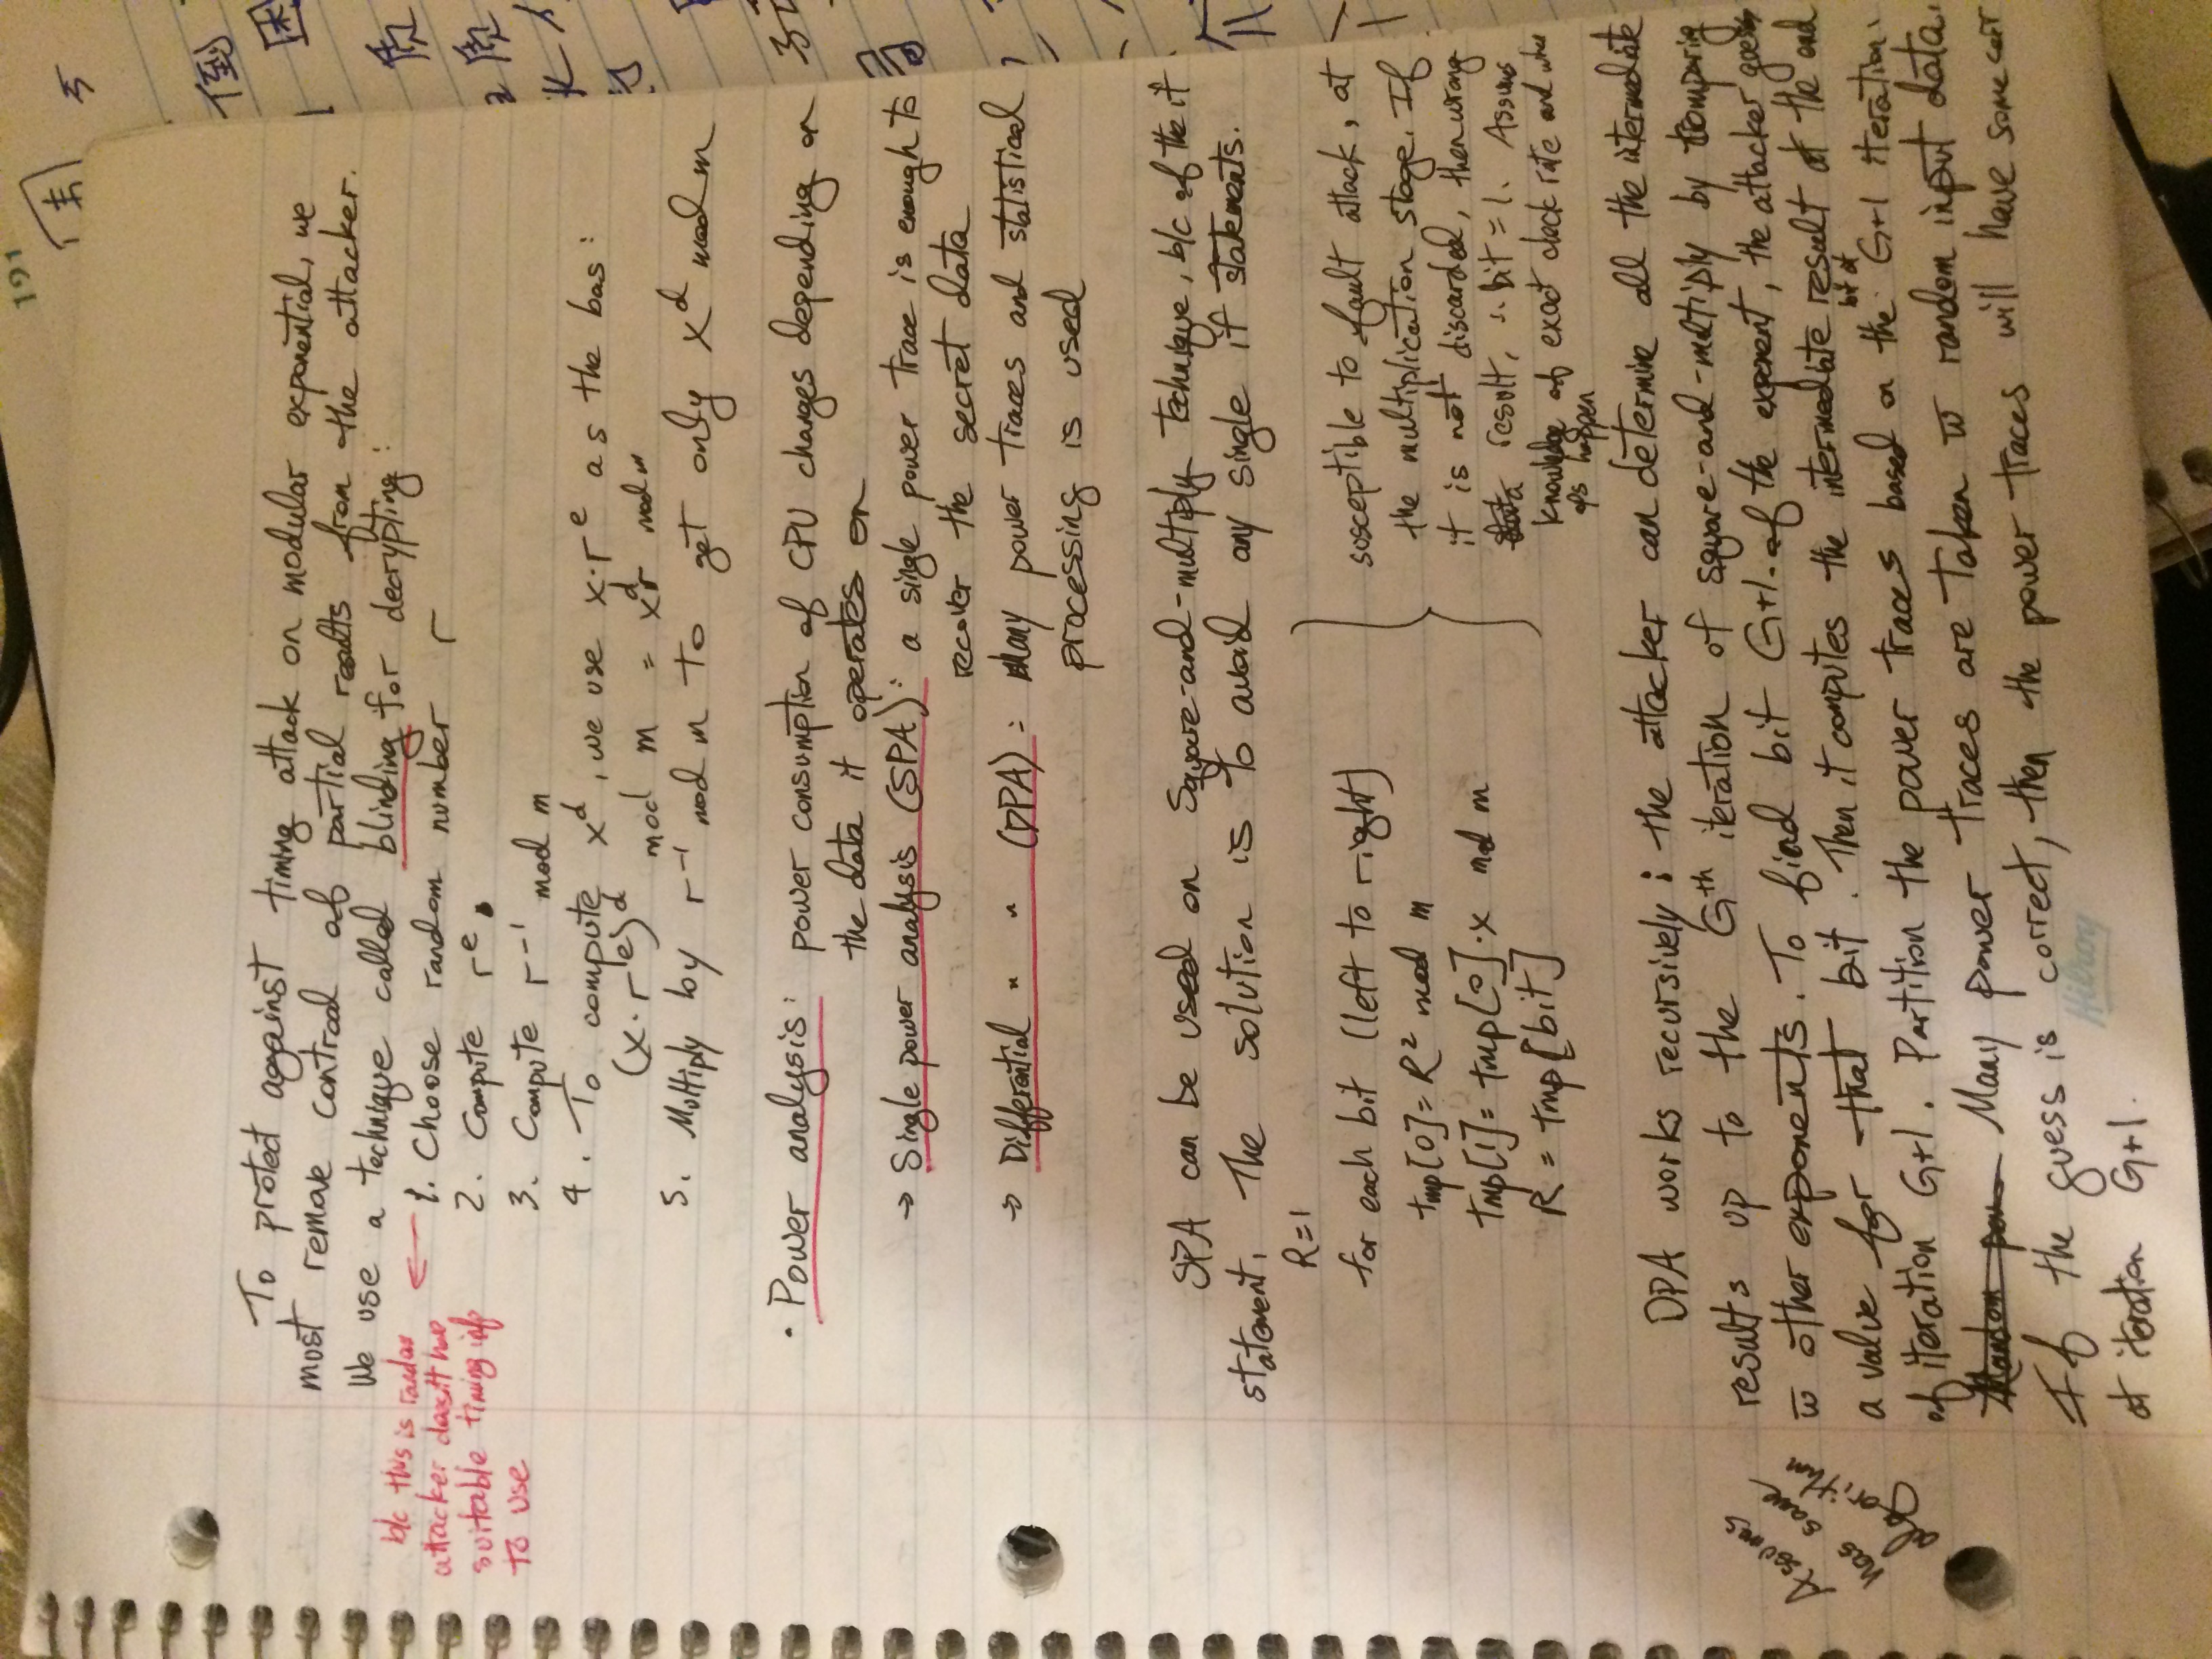 191
To protect against timing attack on modular exponential, we
must remove control of partial results from the attacker.
We use a technique called blinding for decrypting:
b/c this is random
attacker doesn't have
suitable timing info
to use
1. Choose random number r
2. Compute r^e
3. Compute r^-1 mod m
4. To compute x^d, we use x·r^e as the bas:
(x·r^e)^d mod m = x^d r mod m
5. Multiply by r^-1 mod m to get only x^d mod m
· Power analysis: power consumption of CPU changes depending on
the data it operates on
→ Single power analysis (SPA): a single power trace is enough to
recover the secret data
→ Differential " " (DPA): Many power traces and statistical
processing is used
SPA can be used on square-and-multiply technique, b/c of the if
statement. The solution is to avoid any single if statements.
R=1
for each bit (left to right)
tmp[0]= R² mod m
tmp[1]= tmp[0]·x mod m
R = tmp[bit]
susceptible to fault attack, at
the multiplication stage. If
it is not discarded, then wrong
data result, ∴ bit = 1. Assumes
knowledge of exact clock rate and when
ops happen
DPA works recursively: the attacker can determine all the intermediate
results up to the Gth iteration of square-and-multiply by comparing
w̄ other exponents. To find bit G+1 of the exponent, the attacker guesses
a value for that bit. Then it computes the intermediate result at the end
of iteration G+1. Partition the power traces based on the bit at G+1 iteration.
Random pow Many power traces are taken w̄ random input data.
If the guess is correct, then the power traces will have some corr
at iteration G+1.
Assumes
has same
algorithm
Hilroy
倒
困
质
质